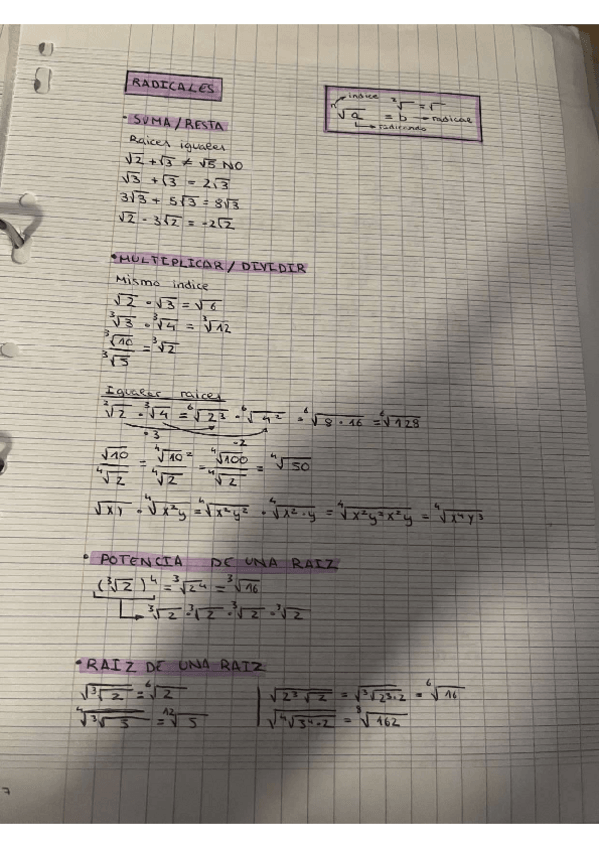 RADICALES
índice ²√ = √
ⁿ√a = b → radical
radicando
· SUMA/RESTA
Raíces iguales
√2 + √3 ≠ √5 NO
√3 + √3 = 2√3
3√3 + 5√3 = 8√3
√2 - 3√2 = -2√2
· MULTIPLICAR/DIVIDIR
Mismo índice
√2 · √3 = √6
³√3 · ³√4 = ³√12
³√10 / ³√5 = ³√2
Igualar raíces
²√2 · ³√4 = ⁶√2³ · ⁶√4² = ⁶√8·16 = ⁶√128
·3 ·2
√10 / ⁴√2 = ⁴√10² / ⁴√2 = ⁴√100 / ⁴√2 = ⁴√50
√xy · ⁴√x²y = ⁴√x²y² · ⁴√x²·y = ⁴√x²y²x²y = ⁴√x⁴y³
· POTENCIA DE UNA RAIZ
(³√2)⁴ = ³√2⁴ = ³√16
³√2 · ³√2 · ³√2 · ³√2
· RAIZ DE UNA RAIZ
√³√2 = ⁶√2
⁴√³√5 = ¹²√5
√2³√2 = √³√2³·2 = ⁶√16
√⁴√3⁴·2 = ⁸√162
7